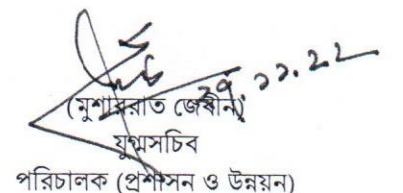 ২৭.১১.২২
(মুশাররাত জেবীন)
যুগ্মসচিব
পরিচালক (প্রশাসন ও উন্নয়ন)